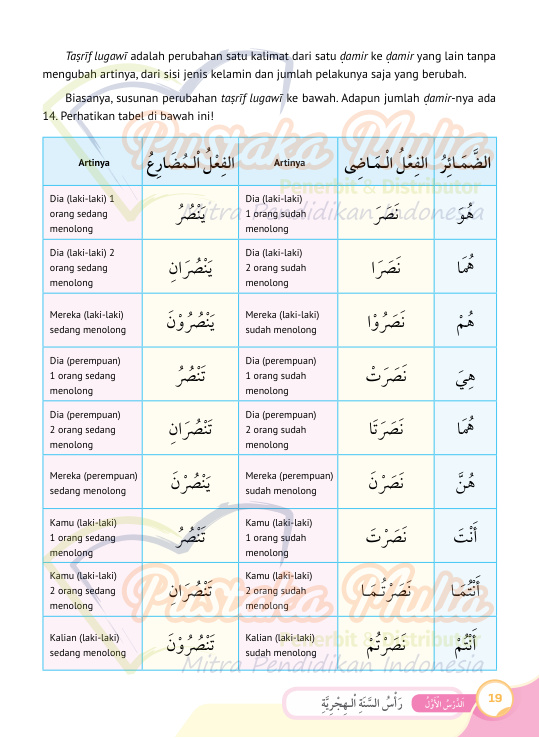 Taṣrīf lugawī adalah perubahan satu kalimat dari satu ḍamir ke ḍamir yang lain tanpa
mengubah artinya, dari sisi jenis kelamin dan jumlah pelakunya saja yang berubah.
Biasanya, susunan perubahan taṣrīf lugawī ke bawah. Adapun jumlah ḍamir-nya ada
14. Perhatikan tabel di bawah ini!
Artinya الفِعْلُ الْـمُضَارِعُ Artinya الفِعْلُ الْـمَاضِى الضَّمَائِرُ
Dia (laki-laki) 1
orang sedang
menolong
يَنْصُرُ
Dia (laki-laki)
1 orang sudah
menolong
نَصَرَ
هُوَ
Dia (laki-laki) 2
orang sedang
menolong
يَنْصُرَانِ
Dia (laki-laki)
2 orang sudah
menolong
نَصَرَا
هُمَا
Mereka (laki-laki)
sedang menolong
يَنْصُرُوْنَ
Mereka (laki-laki)
sudah menolong
نَصَرُوْا
هُمْ
Dia (perempuan)
1 orang sedang
menolong
تَنْصُرُ
Dia (perempuan)
1 orang sudah
menolong
نَصَرَتْ
هِيَ
Dia (perempuan)
2 orang sedang
menolong
تَنْصُرَانِ
Dia (perempuan)
2 orang sudah
menolong
نَصَرَتَا
هُمَا
Mereka (perempuan)
sedang menolong
يَنْصُرْنَ
Mereka (perempuan)
sudah menolong
نَصَرْنَ
هُنَّ
Kamu (laki-laki)
1 orang sedang
menolong
تَنْصُرُ
Kamu (laki-laki)
1 orang sudah
menolong
نَصَرْتَ
أَنْتَ
Kamu (laki-laki)
2 orang sedang
menolong
تَنْصُرَانِ
Kamu (laki-laki)
2 orang sudah
menolong
نَصَرْتُـمَا
أَنْتُمَا
Kalian (laki-laki)
sedang menolong
تَنْصُرُوْنَ
Kalian (laki-laki)
sudah menolong
نَصَرْتُمْ
أَنْتُمْ
Pustaka Mulia
Penerbit & Distributor
Mitra Pendidikan Indonesia
Pustaka Mulia
Penerbit & Distributor
Mitra Pendidikan Indonesia
رَأْسُ السَّنَةِ الْـهِجْرِيَّةِ
الدَّرْسُ الْأَوَّلُ
19